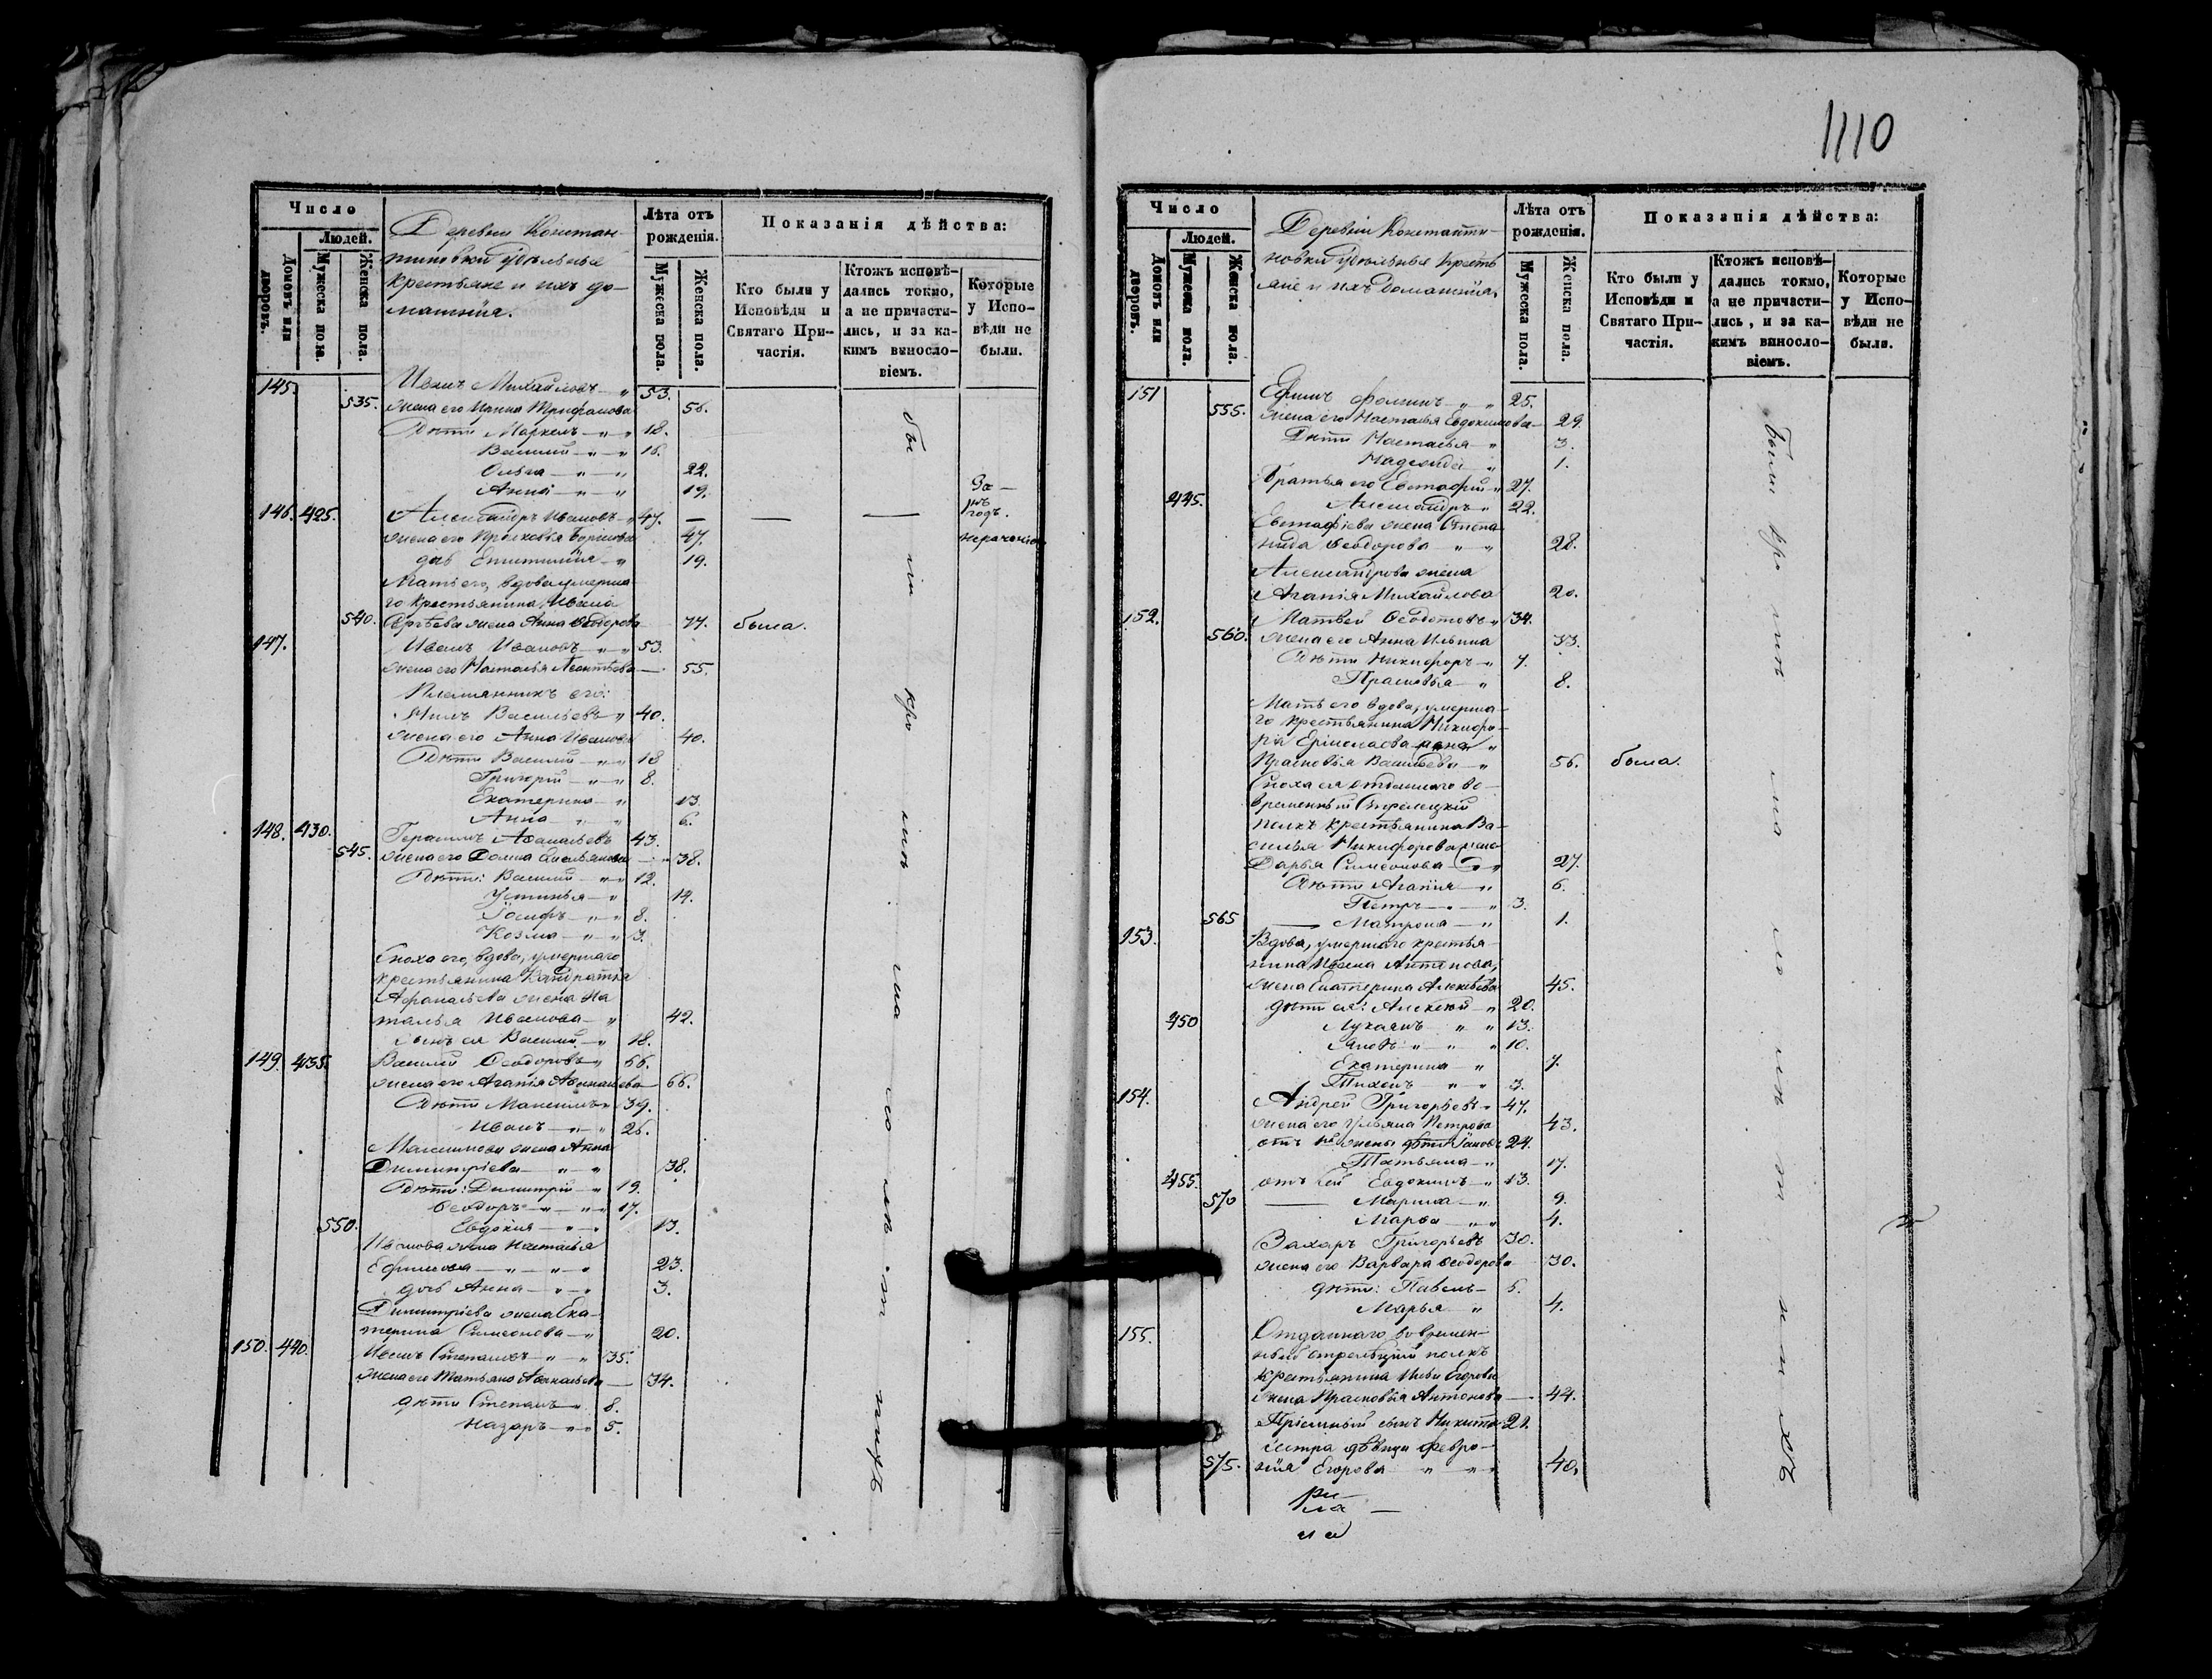 1110
Число
Людей.
Домовъ или дворовъ.
Мужеска пола.
Женска пола.
Деревни Констан-
тиновки Удѣльные
крестьяне и ихъ до-
машнія.
Лѣта отъ рожденія.
Мужеска пола.
Женска пола.
Показанія дѣйства:
Кто были у Исповѣди и Святаго Причастія.
Ктожъ исповѣ-
дались токмо,
а не причасти-
лись, и за ка-
кимъ винносло-
віемъ.
Которые
у Испо-
вѣди не
были.
145. Иванъ Михайловъ 53.
535. жена его Ирина Трифонова 56.
Дѣти Маркелъ 18.
Василий 16.
Ольга 22.
Анна 19.
146. 425. Александръ Ивановъ 47. — — —
жена его Прасковья Борисова 47.
дочь Епистимія 19.
Мать его, вдова умерша-
го крестьянина Ивана
540. Сергѣева жена Анна Ѳедорова 77. была.
147. Иванъ Ивановъ 53.
жена его Наталья Леонтьева 55.
Племянникъ его:
Нилъ Васильевъ 40.
жена его Анна Иванова 40.
Дѣти Василий 18
Григорій 8.
Екатерина 13.
Анна 6.
148. 430. Герасимъ Аѳанасьевъ 43.
545. жена его Домна Емельянова 38.
Дѣти: Василий 12.
Устинья 14.
Іосифъ 8.
Козма 3.
Сноха его, вдова, умершаго
крестьянина Кондратія
Афанасьева жена На
талья Иванова 42.
сынъ ея Василий 18.
149. 435. Василий Ѳеодоровъ 66.
жена его Агапія Аѳанасьева 66.
Дѣти Максимъ 39.
Иванъ 26.
Максимова жена Анна
Димитріева 38.
Дѣти: Димитрій 19.
Ѳеодоръ 17.
550. Евдокія 13.
Иванова жена Наталья
Ефимова 23.
дочь Анна 3.
Димитріева жена Ека-
терина Симеонова 20.
150. 440. Иванъ Степановъ 35.
жена его Татьяна Аѳанасьева 34.
дѣти Степанъ 8.
Назаръ 5.
За
годъ.
нераченіемъ
Число
Людей.
Домовъ или дворовъ.
Мужеска пола.
Женска пола.
Деревни Константи-
новки Удѣльные Кресть
яне и ихъ домашнія.
Лѣта отъ рожденія.
Мужеска пола.
Женска пола.
Показанія дѣйства:
Кто были у Исповѣди и Святаго Причастія.
Ктожъ исповѣ-
дались токмо,
а не причасти-
лись, и за ка-
кимъ винносло-
віемъ.
Которые
у Испо-
вѣди не
были.
151 Ефимъ Фоминъ 25.
555. жена его Настасья Евдокимова 29.
Дѣти Настасья 3.
Надежда 1.
Братья его Евстафій 27.
445. Александръ 22.
Евстафіева жена Степа
нида Ѳеодорова 28.
Александрова жена
Агапія Михайлова 20.
152. Матвей Ѳедотовъ 34.
560. жена его Анна Ильина 33.
Дѣти Никифоръ 7.
Прасковья 8.
Мать его вдова, умерша-
го крестьянина Никифо-
ра Ермолаева жена
Прасковья Васильева 56. была.
Сноха ея отданнаго во
временный Стрелецкий
полкъ крестьянина Ва-
силья Никифорова жена
Дарья Симеонова 27.
Дѣти Агапія 6.
Петръ 3.
565 Матрона 1.
153. Вдова, умершаго крестья-
нина Ивана Антипова,
жена Екатерина Алексѣева 45.
дѣти ея: Алексѣй 20.
450 Лукіянъ 13.
Яковъ 10.
Екатерина 7.
Тихонъ 3.
154. Андрей Григорьевъ 47.
жена его Ульяна Петрова 43.
отъ 1й жены дѣти Іаковъ 24.
Татьяна 17.
455. отъ сей Евдокимъ 13.
570 Марина 9.
Марѳа 4.
Захаръ Григорьевъ 30.
жена его Варвара Ѳеодорова 30.
дѣти: Павелъ 6.
Марья 4.
155. Отданнаго во времен-
ный стрелецкий полкъ
крестьянина Ильи Егорова
жена Прасковья Антонова 44.
Пріемный сынъ Никита 21.
сестра дѣвица Февро-
575. нія Егорова 40.